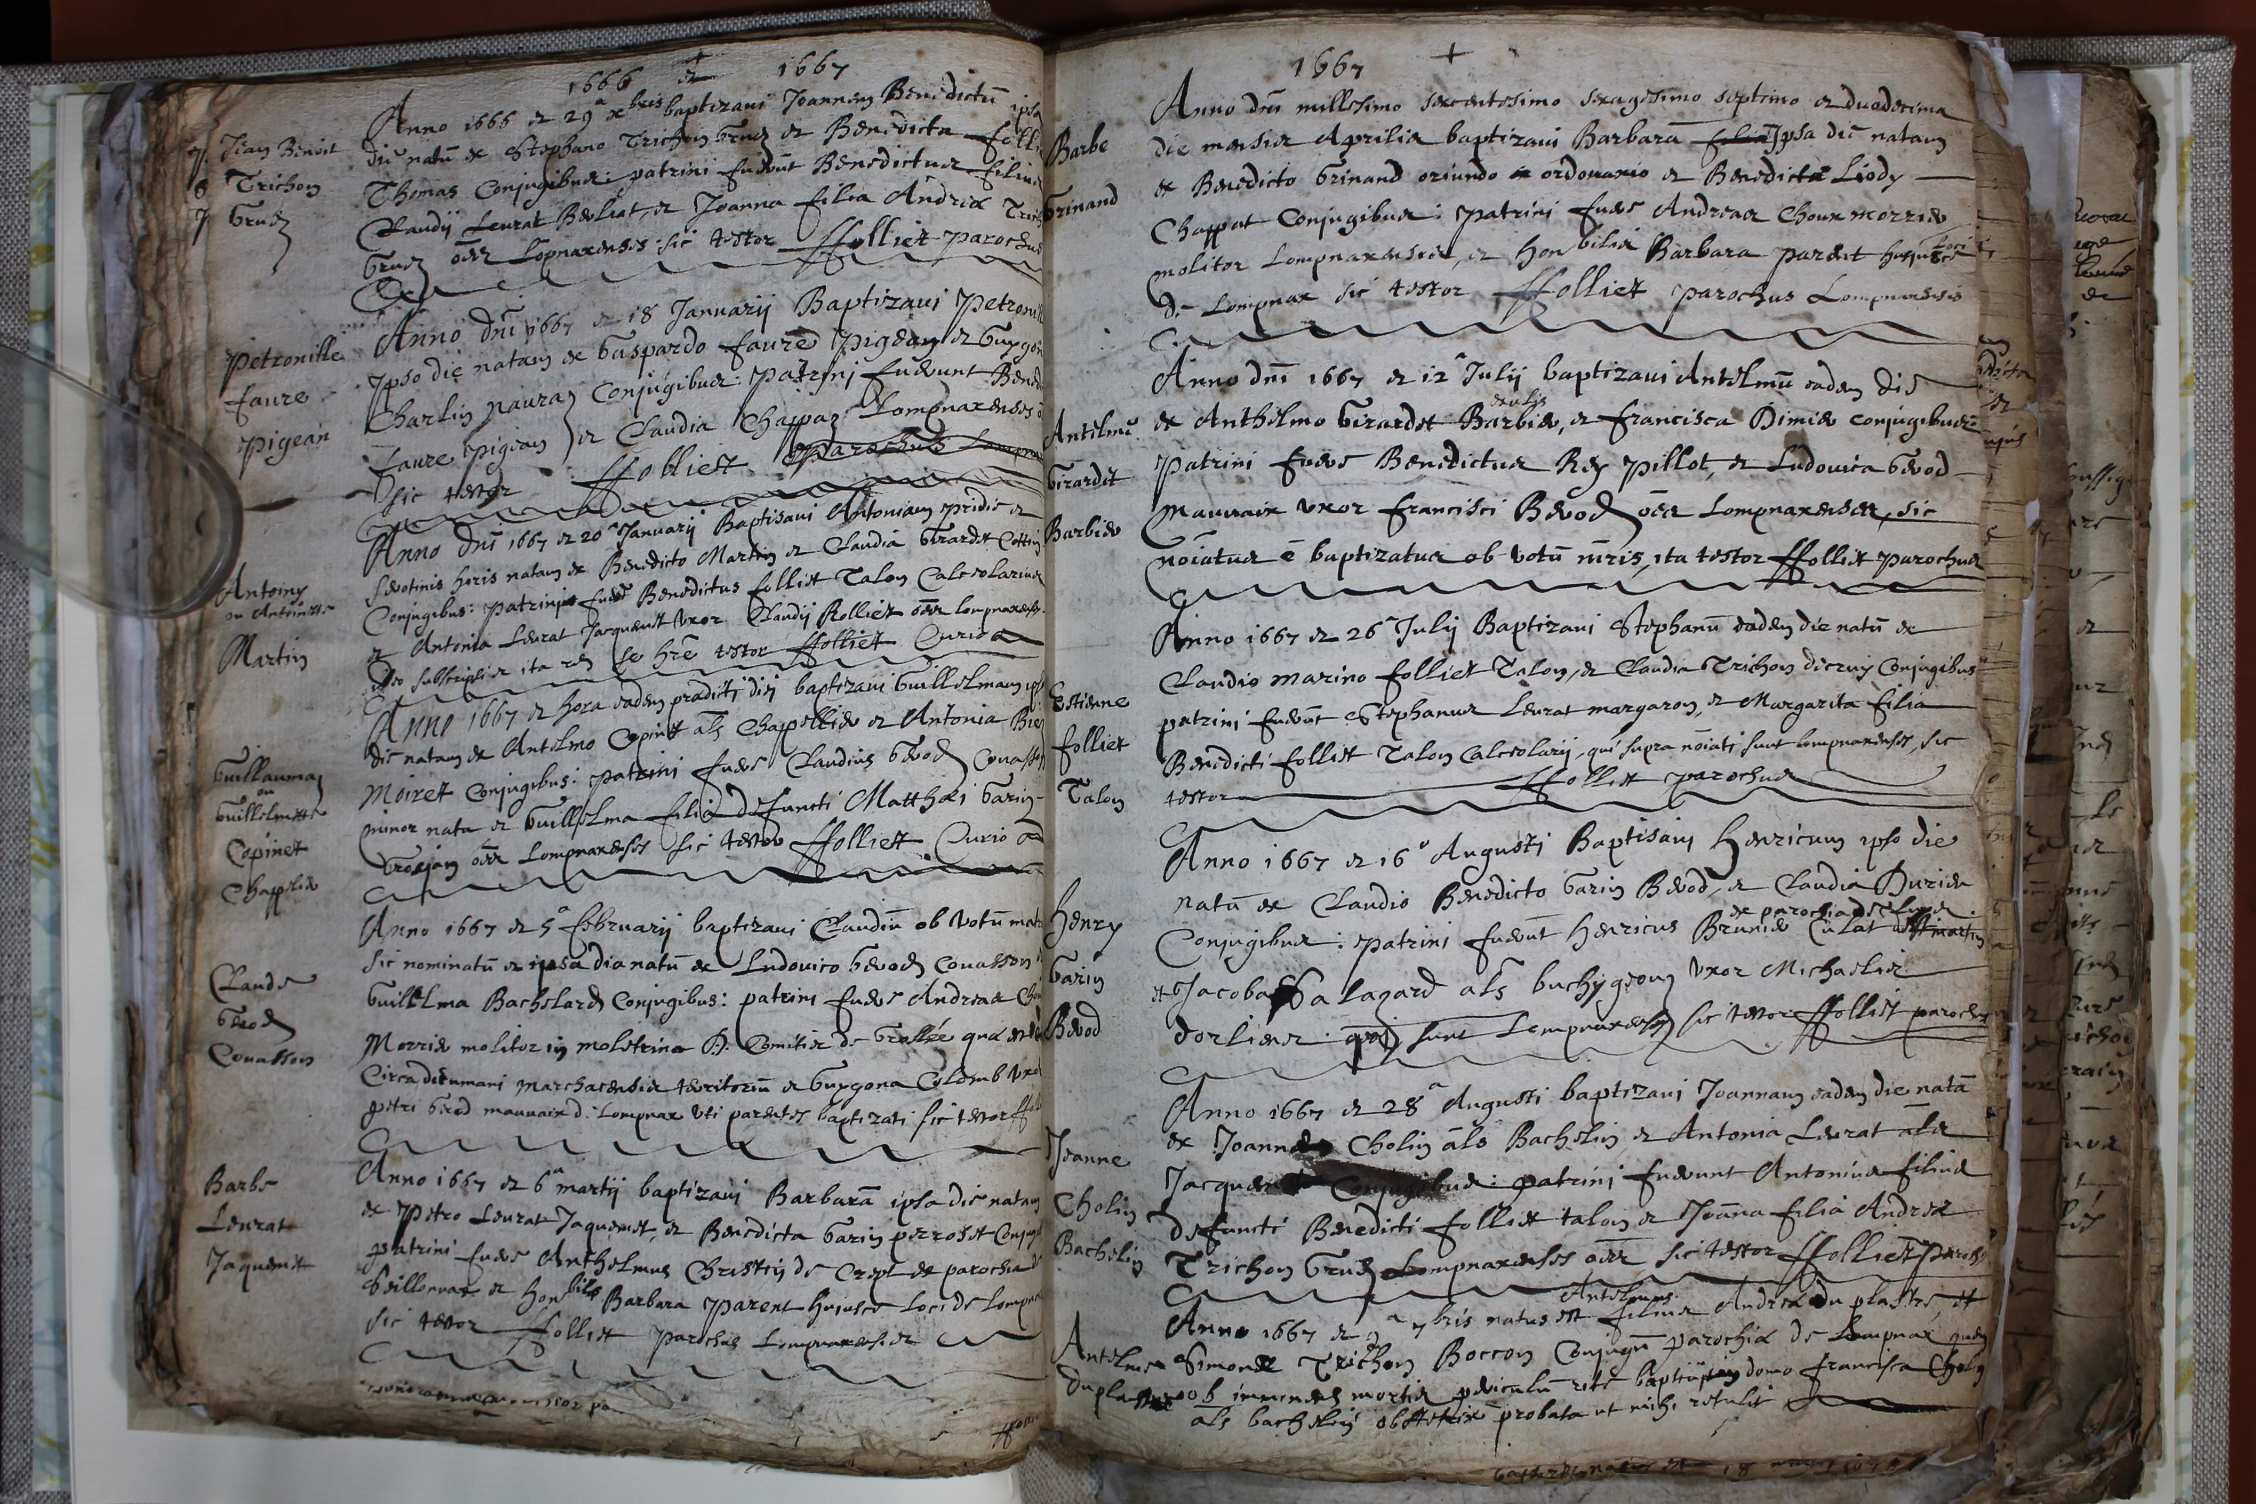 1666 et 1667
Jean Benoit
Trichon
Grudz
Anno 1666 et 29a xbris baptizavi Joannem Benedictū ipsa
die natū ex Stephano Trichon Grudz et Benedicta folli
Thomas Conjugibus: patrini fuerūt Benedictus filius
Claudij Leurat Berliat, et Joanna filia Andreæ Trich
Grudz oēs Lopnaxenses sic testor ffolliet parochus
Petronille
faure
pigean
Anno dnī 1667 et 18 Januarij Baptizavi Petronill
ipso die natam ex Gaspardo faure Pigean et Guygon
Charlin Conjugibus: Patrini fuerunt Bened
faure pigean et Claudia Chappaz Lompnaxenses
sic testor ffolliet parochus Lompna
Antoiny
ou Antoinette
Martin
Anno dnī 1667 et 20a Januarij Baptisavi Antoniam pridie et
serotinis horis natam ex Benedicto Martin et Claudia Girardet Cottin
Conjugibus: patrini fuerē Benedictus folliet Talon Calceolarius
et Antonia Leurat Jacquemet uxor Claudij Rolliet oēs lompnaxenses
ideo subscripsi et ita rem se hrē testor ffolliet Curio
Guillauma
ou
Guillelmette
Copinet
Chappelier
Anno 1667 et hora eadem prædicti diei baptizavi Guillelmam ips
die natam ex Antelmo Copinet als Chappellier et Antonia
Moiret Conjugibus: patrini fuere Claudius Gevod Couasson
minor natu et Guillelma filia defuncti Matthæi Garin
oēs Lompnaxenses sic testor ffolliet Curio
Claude
Gevod
Couasson
Anno 1667 et 5a februarij baptizavi Claudiū ob votū mat
sic nominatū et ipsa die natū ex Ludovico Gevod Couasson
Guillelma Bachelard Conjugibus: patrini fuere Andreas Cho
Morrier molitor in moletrina D. Comitis de Grollée quæ est
Circa decumani marchacensis territoriū et Guygona Colomb uxor
petri Gevod mauvaix de Lompnax uti parentes baptizati sic testor ff
Barbe
Leurat
Jaquemet
Anno 1667 et 6a martij baptizavi Barbarā ipsa die natam
ex Petro Leurat Jaquemet, et Benedicta Garin perroset Conjug
patrini fuere Anthelmus Christin de Crept ex parochia
Seillonaz et honbilis Barbara Parent hujusce loci de Lompna
sic testor ffolliet parochus Lompnaxensis
1667
Barbe
Grinand
Anno dnī millesimo sexcentesimo sexagesimo septimo et duodecima
die mensis Aprilis baptizavi Barbarā filia ipsa die natam
ex Benedicto Grinand oriundo ex ordonario et Benedicta Liody
Chappat Conjugibus: patrini fuere Andreas Choux morrier
molitor Lompnaxensis, et honbilis Barbara parent hujusce loci
de Lompnax sic testor ffolliet parochus Lompnaxensis
Antelme
Girardet
Barbier
Anno dnī 1667 et 12a Julij baptizavi Antelmū eadem die
ex Anthelmo Girardet Barbier, et francisca Dimier conjugibus
Patrini fuere Benedictus Rey Pillot, et Ludovica Gevod
mauvaix uxor francisci Brevod oēs Lompnaxenses, sic
noiatus ē baptizatus ob votū mris, ita testor ffolliet parochus
Estienne
folliet
Talon
Anno 1667 et 26a Julij Baptizavi Stephanū eadem die natū ex
Claudio marino folliet Talon, et Claudia Trichon Conjugibus
patrini fuerūt Stephanus Leurat margaron, et Margarita filia
Benedicti folliet Talon Calceolarij, qui supra noiati sunt lompnaxenses, sic
testor ffolliet parochus
Henry
Garin
Bevod
Anno 1667 et 16a Augusti Baptisavi Henricum ipso die
natū ex Claudio Benedicto Garin Bevod, et Claudia Durier
Conjugibus: patrini fuerūt Henricus Brunier Culat
et Jacoba Salagard als buchygeon uxor Michaelis
dorlier: qui sunt Lompnaxenses sic testor ffolliet parochus
Jeanne
Cholin
Bachelin
Anno 1667 et 28a Augusti baptizavi Joannam eadem die natā
ex Joanne Cholin als Bachelin, et Antonia Leurat als
Jacquemet Conjugibus: patrini fuerunt Antonius filius
defuncti Benedicti folliet talon et Joāna filia Andreæ
Trichon Grudz Lompnaxenses oēs sic testor ffolliet Paroch
Antelme
duplastre
Antelmus
Anno 1667 et 9a 7bris natus est filius Andreæ du plastre, et
Simondæ Trichon Boccon Conjugū parochiæ de Lompnax quem
ob imminens mortis periculū rite baptizavit in domo francisca Cholin
als bachelin obstetrix probata ut mihi retulit